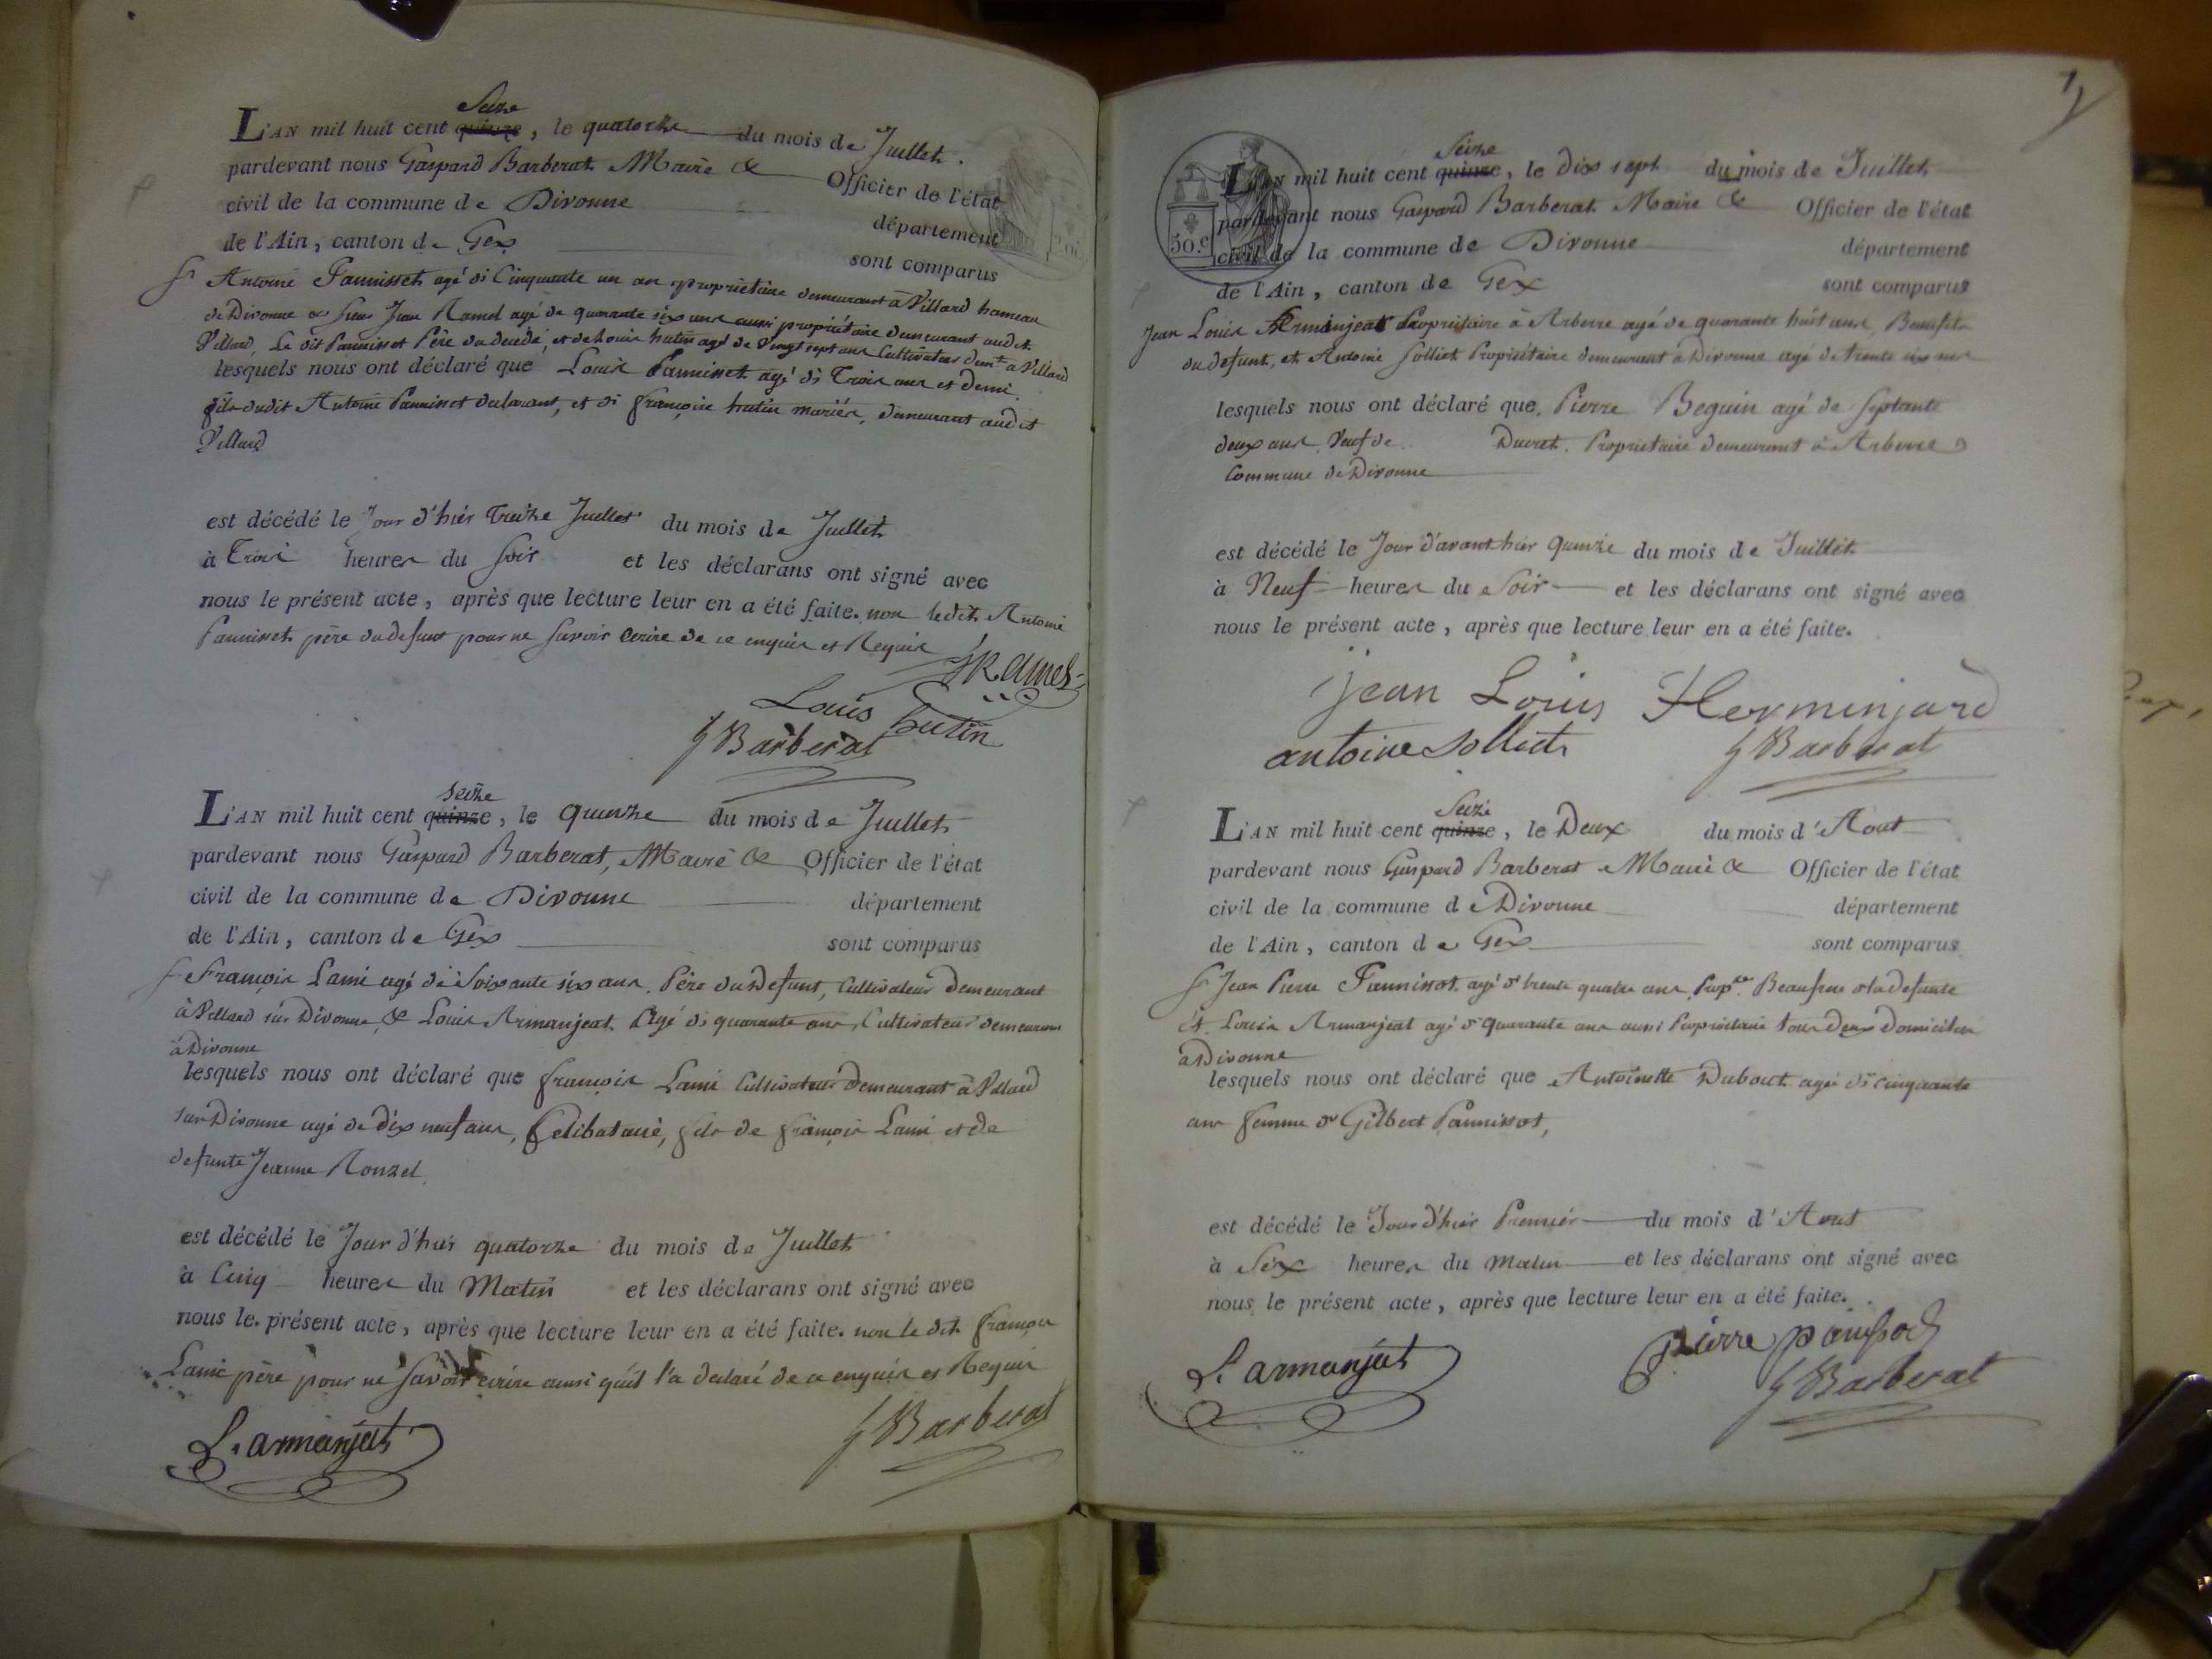 Seize
L'AN mil huit cent quinze, le quatorze du mois de Juillet.
pardevant nous Gaspard Barberat Maire & Officier de l'état
civil de la commune de Divonne département
de l'Ain, canton de Gex sont comparus
Sr Antoine Pannisset agé de Cinquante un an propriétaire demeurant à Villard hameau
de Divonne & sieur Jean Ramel agé de quarante six ans aussi propriétaire demeurant audit
Villard, Le dit Pannisset Père du décédé, et de Louis hutin agé de Vingt sept ans Cultivateur demt à Villard
lesquels nous ont déclaré que Louis Pannisset agé de Trois ans et demi,
fils dudit Antoine Pannisset declarant, et de françoise hutin mariés, demeurant audit
Villard
est décédé le Jour d'hier Treize Juillet du mois de Juillet
à Trois heures du Soir et les déclarans ont signé avec
nous le présent acte, après que lecture leur en a été faite. non ledit Antoine
Pannisset père du defunt pour ne Savoir écrire de ce enquis et Requis
JRamel
Louis hutin
G Barberat
seize
L'AN mil huit cent quinze, le quinze du mois de Juillet
pardevant nous Gaspard Barberat, Maire & Officier de l'état
civil de la commune de Divonne département
de l'Ain, canton de Gex sont comparus
Sr François Lami agé de Soixante six ans, Père du Defunt, Cultivateur Demeurant
à Villard sur Divonne, & Louis Armanjeat Agé de quarante ans, Cultivateur demeurant
à Divonne
lesquels nous ont déclaré que françois Lami Cultivateur Demeurant à Villard
sur Divonne agé de dix neuf ans, Celibataire, fils de françois Lami et de
defunte Jeanne Ronzel.
est décédé le Jour d'hier quatorze du mois de Juillet
à Cinq heures du Matin et les déclarans ont signé avec
nous le présent acte, après que lecture leur en a été faite. non le dit françois
Lami père pour ne Savoir écrire aussi qu'il l'a declaré de ce enquis et Requis
L. armanjat
G Barberat
50.c
Seize
L'AN mil huit cent quinze, le Dix sept du mois de Juillet
pardevant nous Gaspard Barberat Maire & Officier de l'état
civil de la commune de Divonne département
de l'Ain, canton de Gex sont comparus
Jean Louis Arminjeat Propriétaire à Arberre agé de quarante huit ans, Beaufils
du defunt, et Antoine Solliet Propriétaire demeurant à Divonne agé de trente six ans
lesquels nous ont déclaré que Pierre Beguin agé de Septante
deux ans Veuf de Duvret. Propriétaire demeurant à Arberre
Commune de Divonne
est décédé le Jour d'avant hier quinze du mois de Juillet
à Neuf heures du Soir et les déclarans ont signé avec
nous le présent acte, après que lecture leur en a été faite.
jean Louis Herminjard
antoine Solliet
G Barberat
Seize
L'AN mil huit cent quinze, le Deux du mois d'Aout
pardevant nous Gaspard Barberat Maire & Officier de l'état
civil de la commune de Divonne département
de l'Ain, canton de Gex sont comparus
Sr Jean Pierre Pannissot, agé de trente quatre ans, Propre Beaufrere de la defunte
et Louis Armanjeat agé de quarante ans aussi Propriétaire tous deux Domiciliés
à Divonne
lesquels nous ont déclaré que Antoinette Dubout agée de cinquante
ans femme de Gilbert Pannissot,
est décédé le Jour d'hier Premier du mois d'Aout
à Six heures du matin et les déclarans ont signé avec
nous le présent acte, après que lecture leur en a été faite.
L. armanjat
pierre panisod
G Barberat